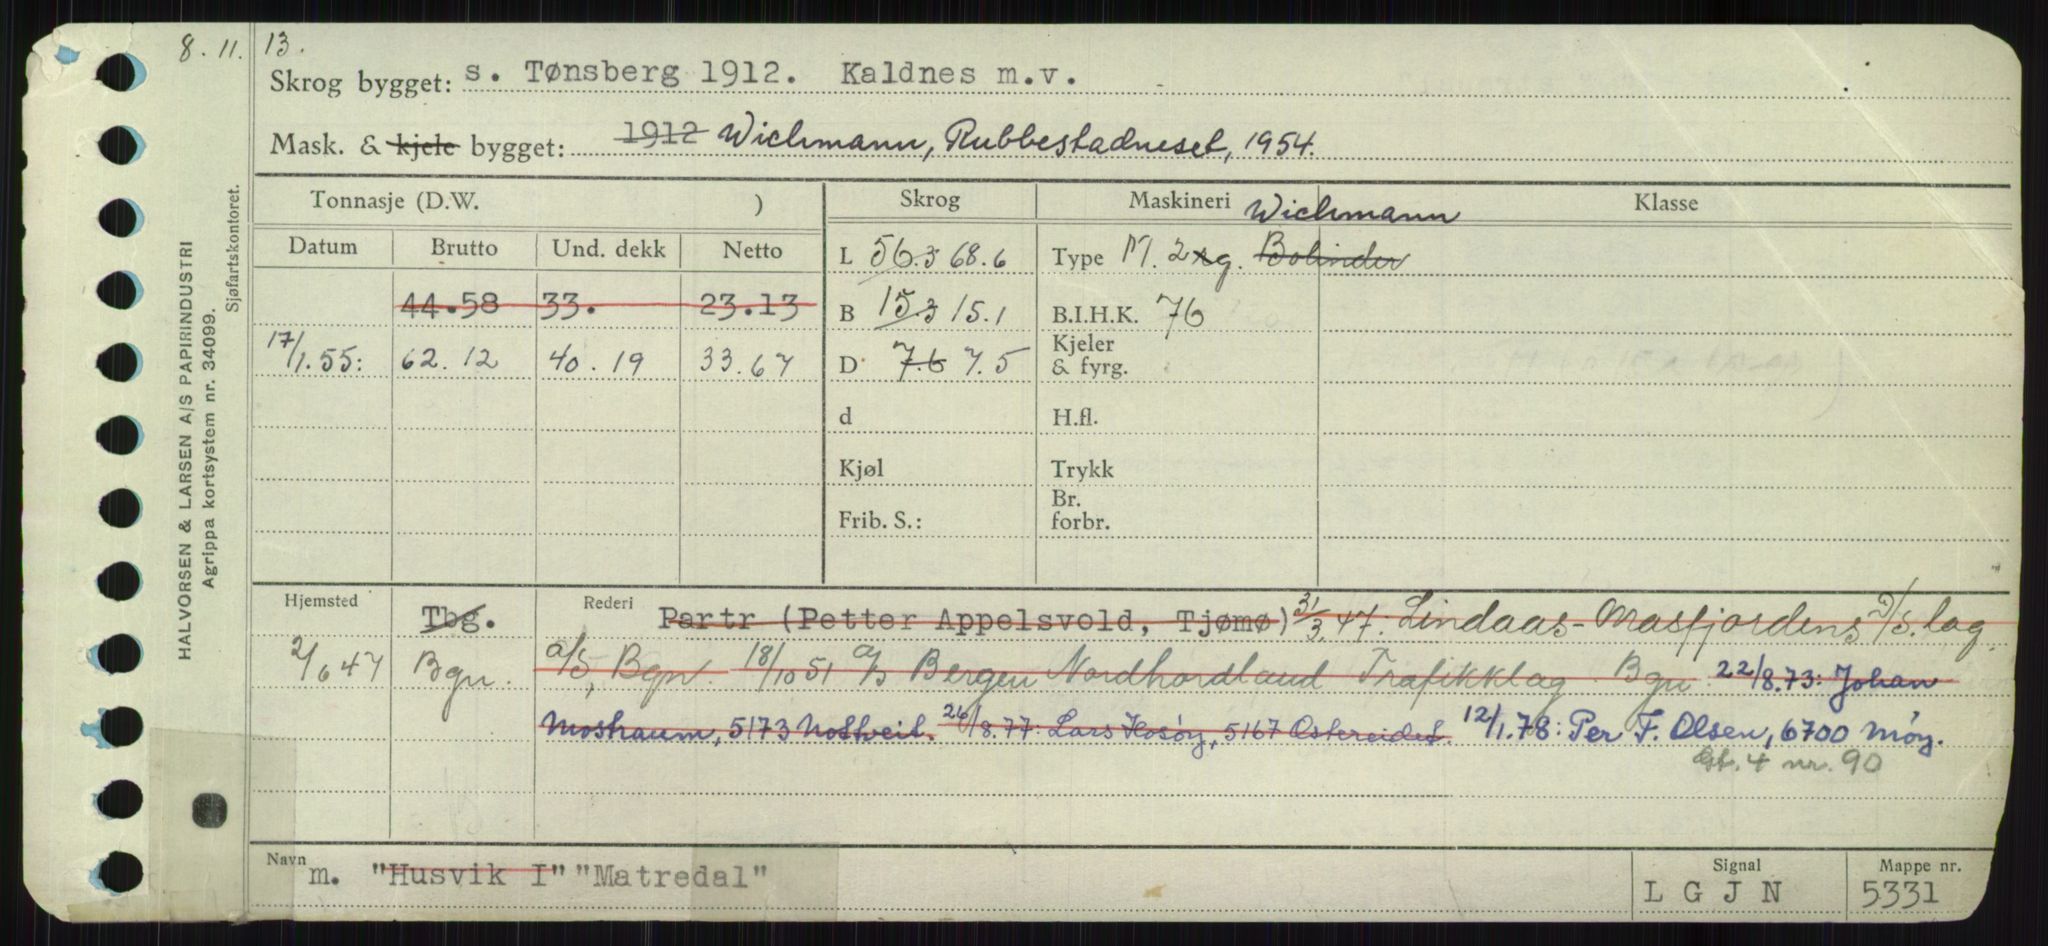 8. 11. 13.
Skrog bygget: s. Tønsberg 1912. Kaldnes m.v.
Mask. & kjele bygget: 1912 Wichmann, Rubbestadneset, 1954.
HALVORSEN & LARSEN A/S PAPIRINDUSTRI
Agrippa kortsystem nr. 34099.
Sjøfartskontoret.
Tonnasje (D.W. ) Skrog Maskineri Wichmann Klasse
Datum Brutto Und. dekk Netto L 56.3 68.6 Type M. 2xg. Bolinder
44.58 33. 23.13 B 15.3 15.1 B.I.H.K. 76
17/1.55: 62.12 40.19 33.67 D 7.6 7.5 Kjeler & fyrg.
d H.fl.
Kjøl Trykk
Frib. S.: Br. forbr.
Hjemsted Tbg. Rederi Partr (Petter Appelsvold, Tjømø) 31/3.47. Lindaas-Masfjordens D/S.lag
2/6 47 Bgn. A/S, Bgn. 18/10 51 A/S Bergen Nordhordland Trafikklag Bgn 22/8.73: Johan
Mostraum, 5173 26/8.77: Lars 5167 Ostereidet. 12/1.78: Per F. Olsen, 6700 Måøy.
nr. 90
Navn m. "Husvik I" "Matredal" Signal L G J N Mappe nr. 5331